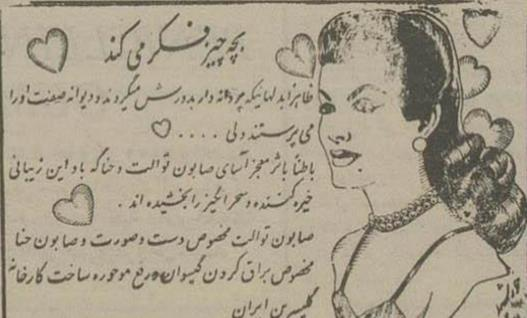 بچه چیز فکر می کند
ظاهراً بدلهائیکه پروانه وار بدورش میگردند و دیوانه صفت اورا
می پرستند ولی ....
باطناً باثر معجز آسای صابون توالت و حنا که باو این زیبائی
خیره کننده و سحر انگیز را بخشیده اند .
صابون توالت مخصوص دست و صورت و صابون حنا
مخصوص براق کردن گیسوان و رفع موخوره ساخت کارخانه
گلیسرین ایران